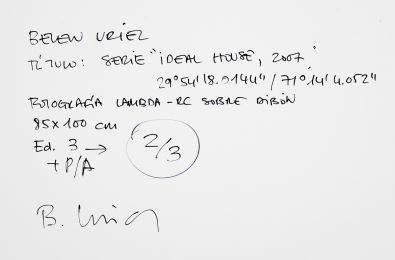 BELEN URIEL
TÍTULO: SERIE "IDEAL HOUSE, 2007"
29°54'18.0144" / 71°14'4.052"
FOTOGRAFÍA LAMBDA-RC SOBRE DIBON
85x100 cm
Ed. 3 → 2/3
+ P/A
B. Uriel